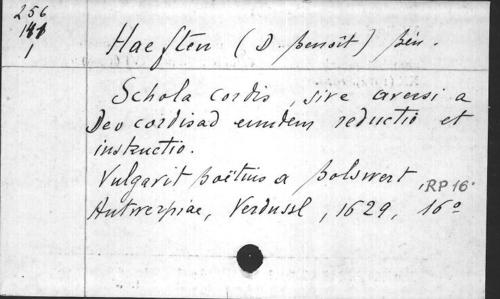 256
141
1
Haeften (D. benoît) bén.
Schola cordis, sive aversi a
Deo cordis ad eumdem reductio et
instructio.
Vulgavit boëtius a bolswert
RP 16°
Antwerpiae, Verdussl, 1629, 16°